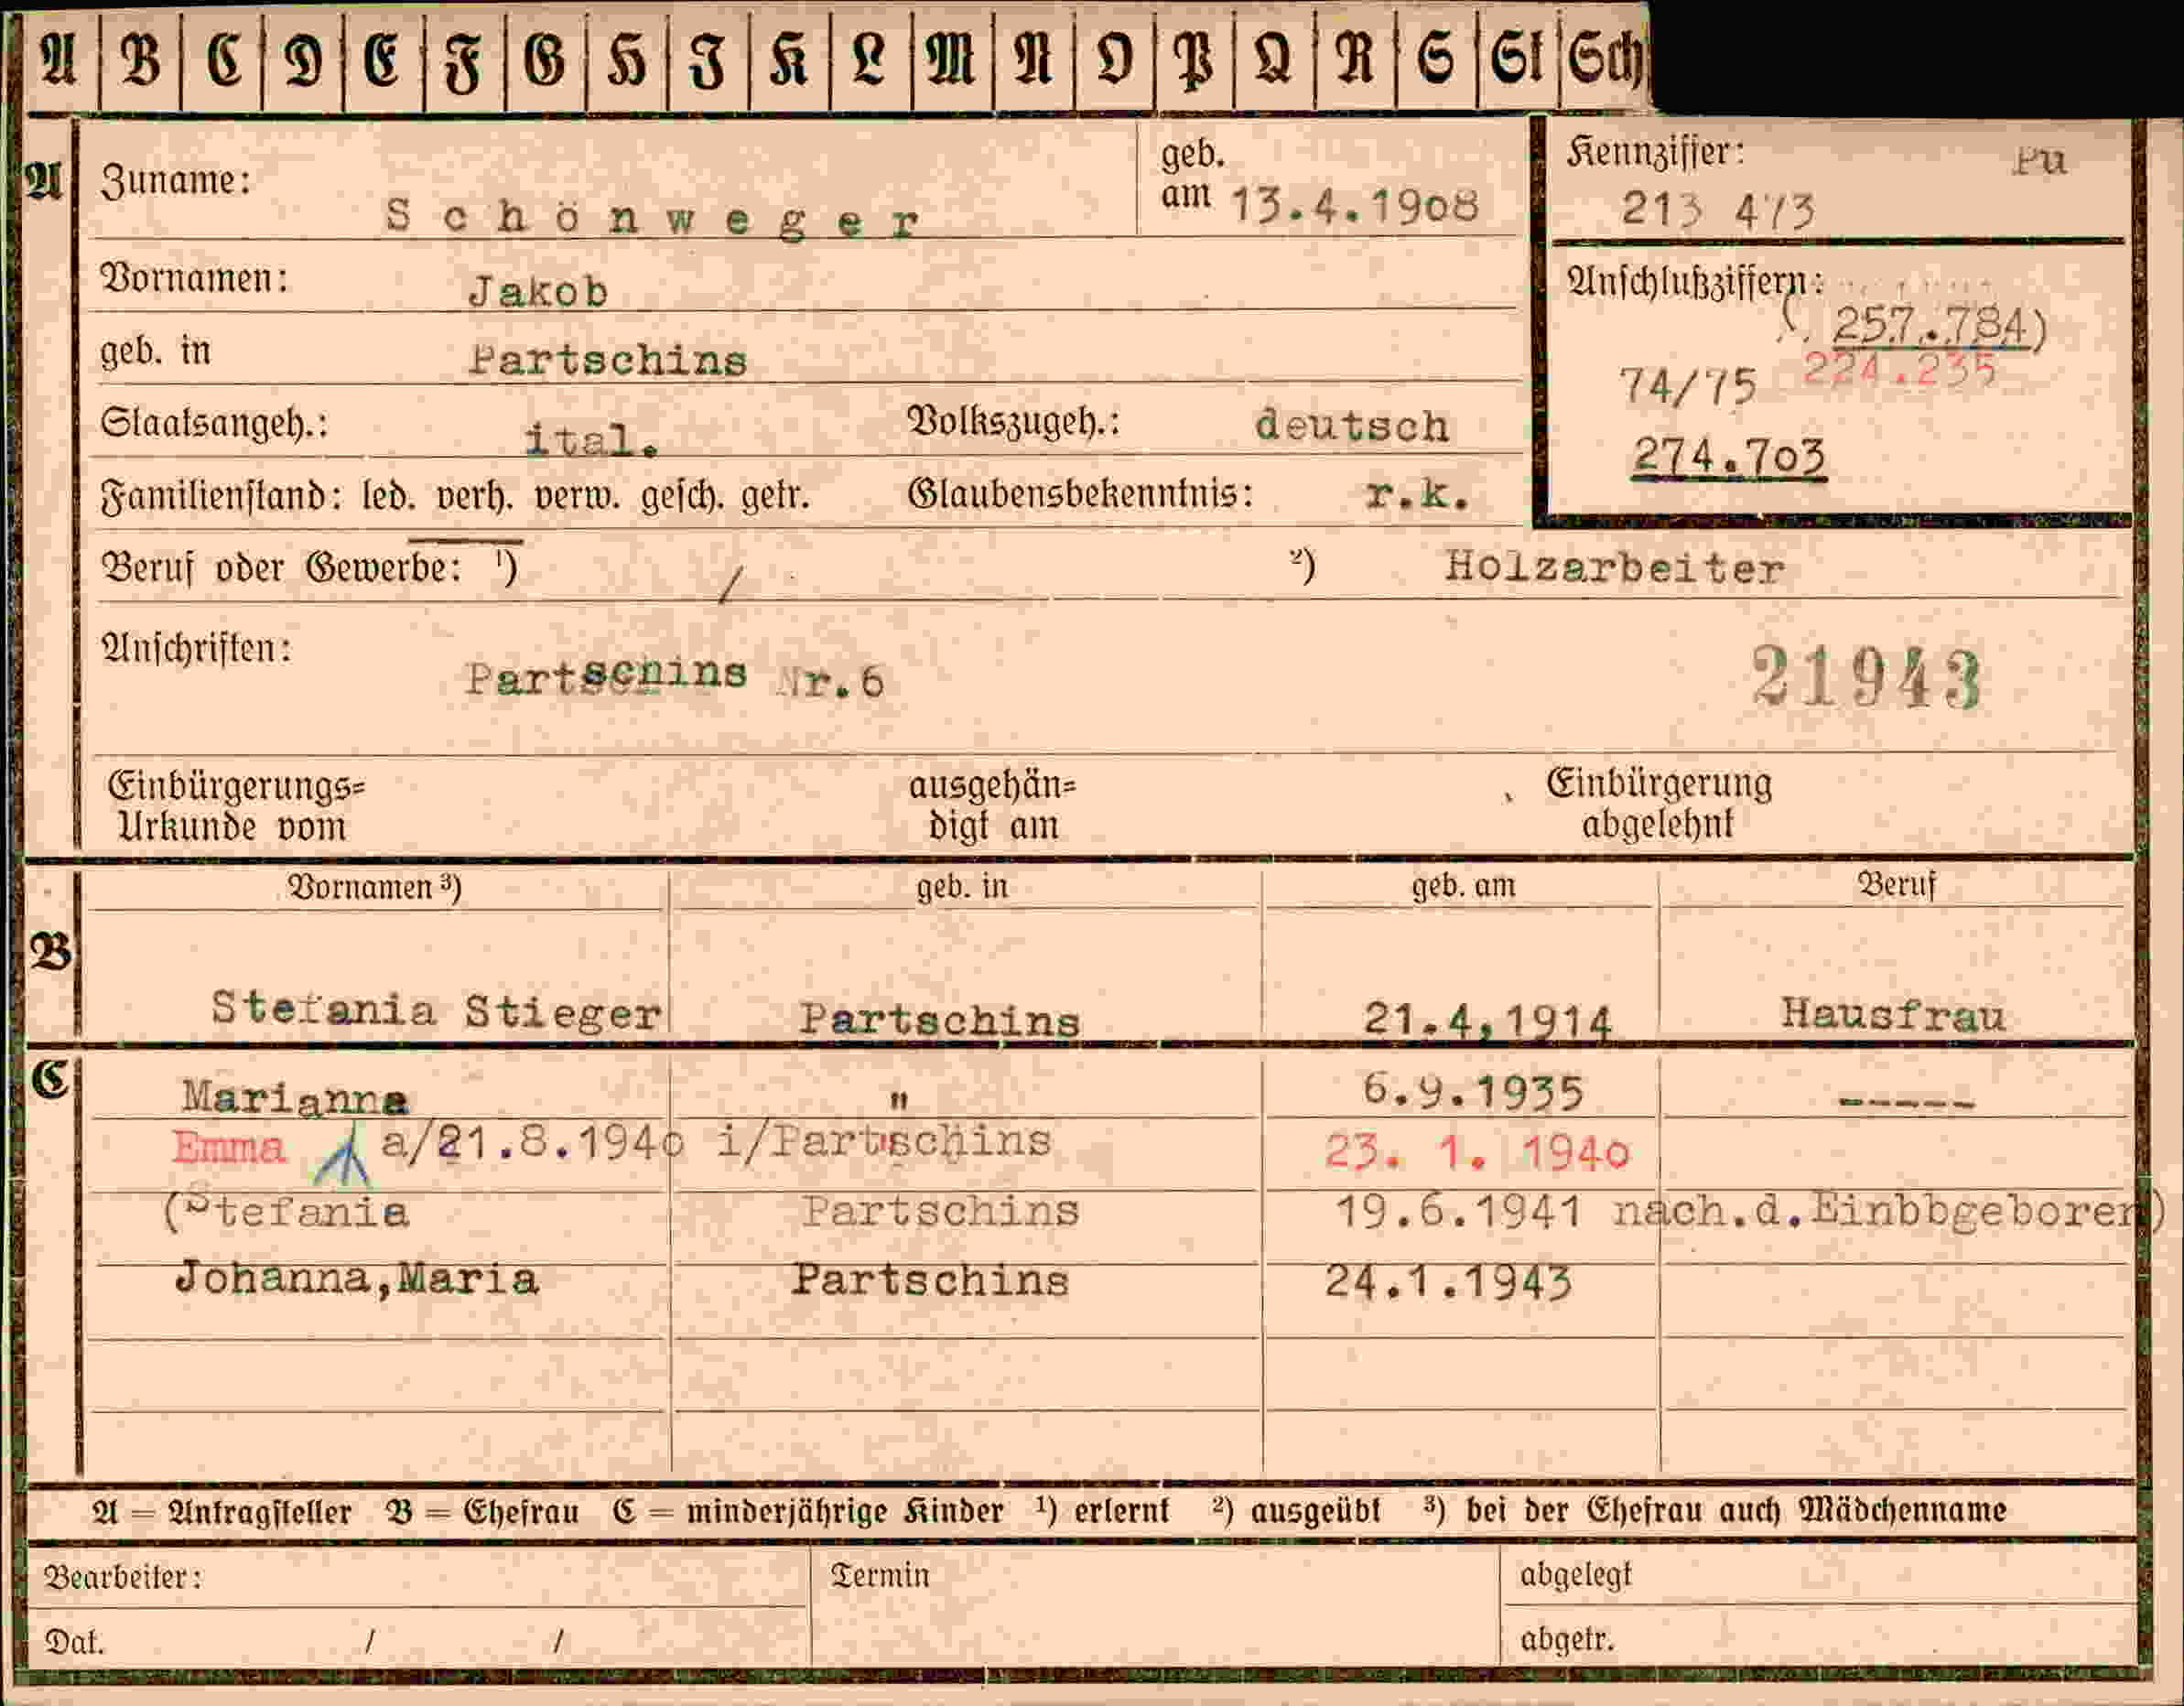 A B C D E F G H I K L M N O P Q R S St Sch
A Zuname: Schönweger geb. am 13.4.1908
Kennziffer: Pu
213 473
Vornamen: Jakob
Anschlußziffern:
(. 257.784)
geb. in Partschins
74/75 224.235
Staatsangeh.: ital. Volkszugeh.: deutsch
274.703
Familienstand: led. verh. verw. gesch. getr. Glaubensbekenntnis: r.k.
Beruf oder Gewerbe: ¹) / ²) Holzarbeiter
Anschriften: Partschins Nr.6 21943
Einbürgerungs= ausgehän= Einbürgerung
Urkunde vom digt am abgelehnt
B Vornamen ³) geb. in geb. am Beruf
Stefania Stieger Partschins 21.4.1914 Hausfrau
C Marianna " 6.9.1935 -----
Emma a/21.8.1940 i/Partschins 23. 1. 1940
(Stefanie Partschins 19.6.1941 nach.d.Einbbgeboren)
Johanna,Maria Partschins 24.1.1943
A = Antragsteller B = Ehefrau C = minderjährige Kinder ¹) erlernt ²) ausgeübt ³) bei der Ehefrau auch Mädchenname
Bearbeiter: Termin abgelegt
Dat. / / abgetr.